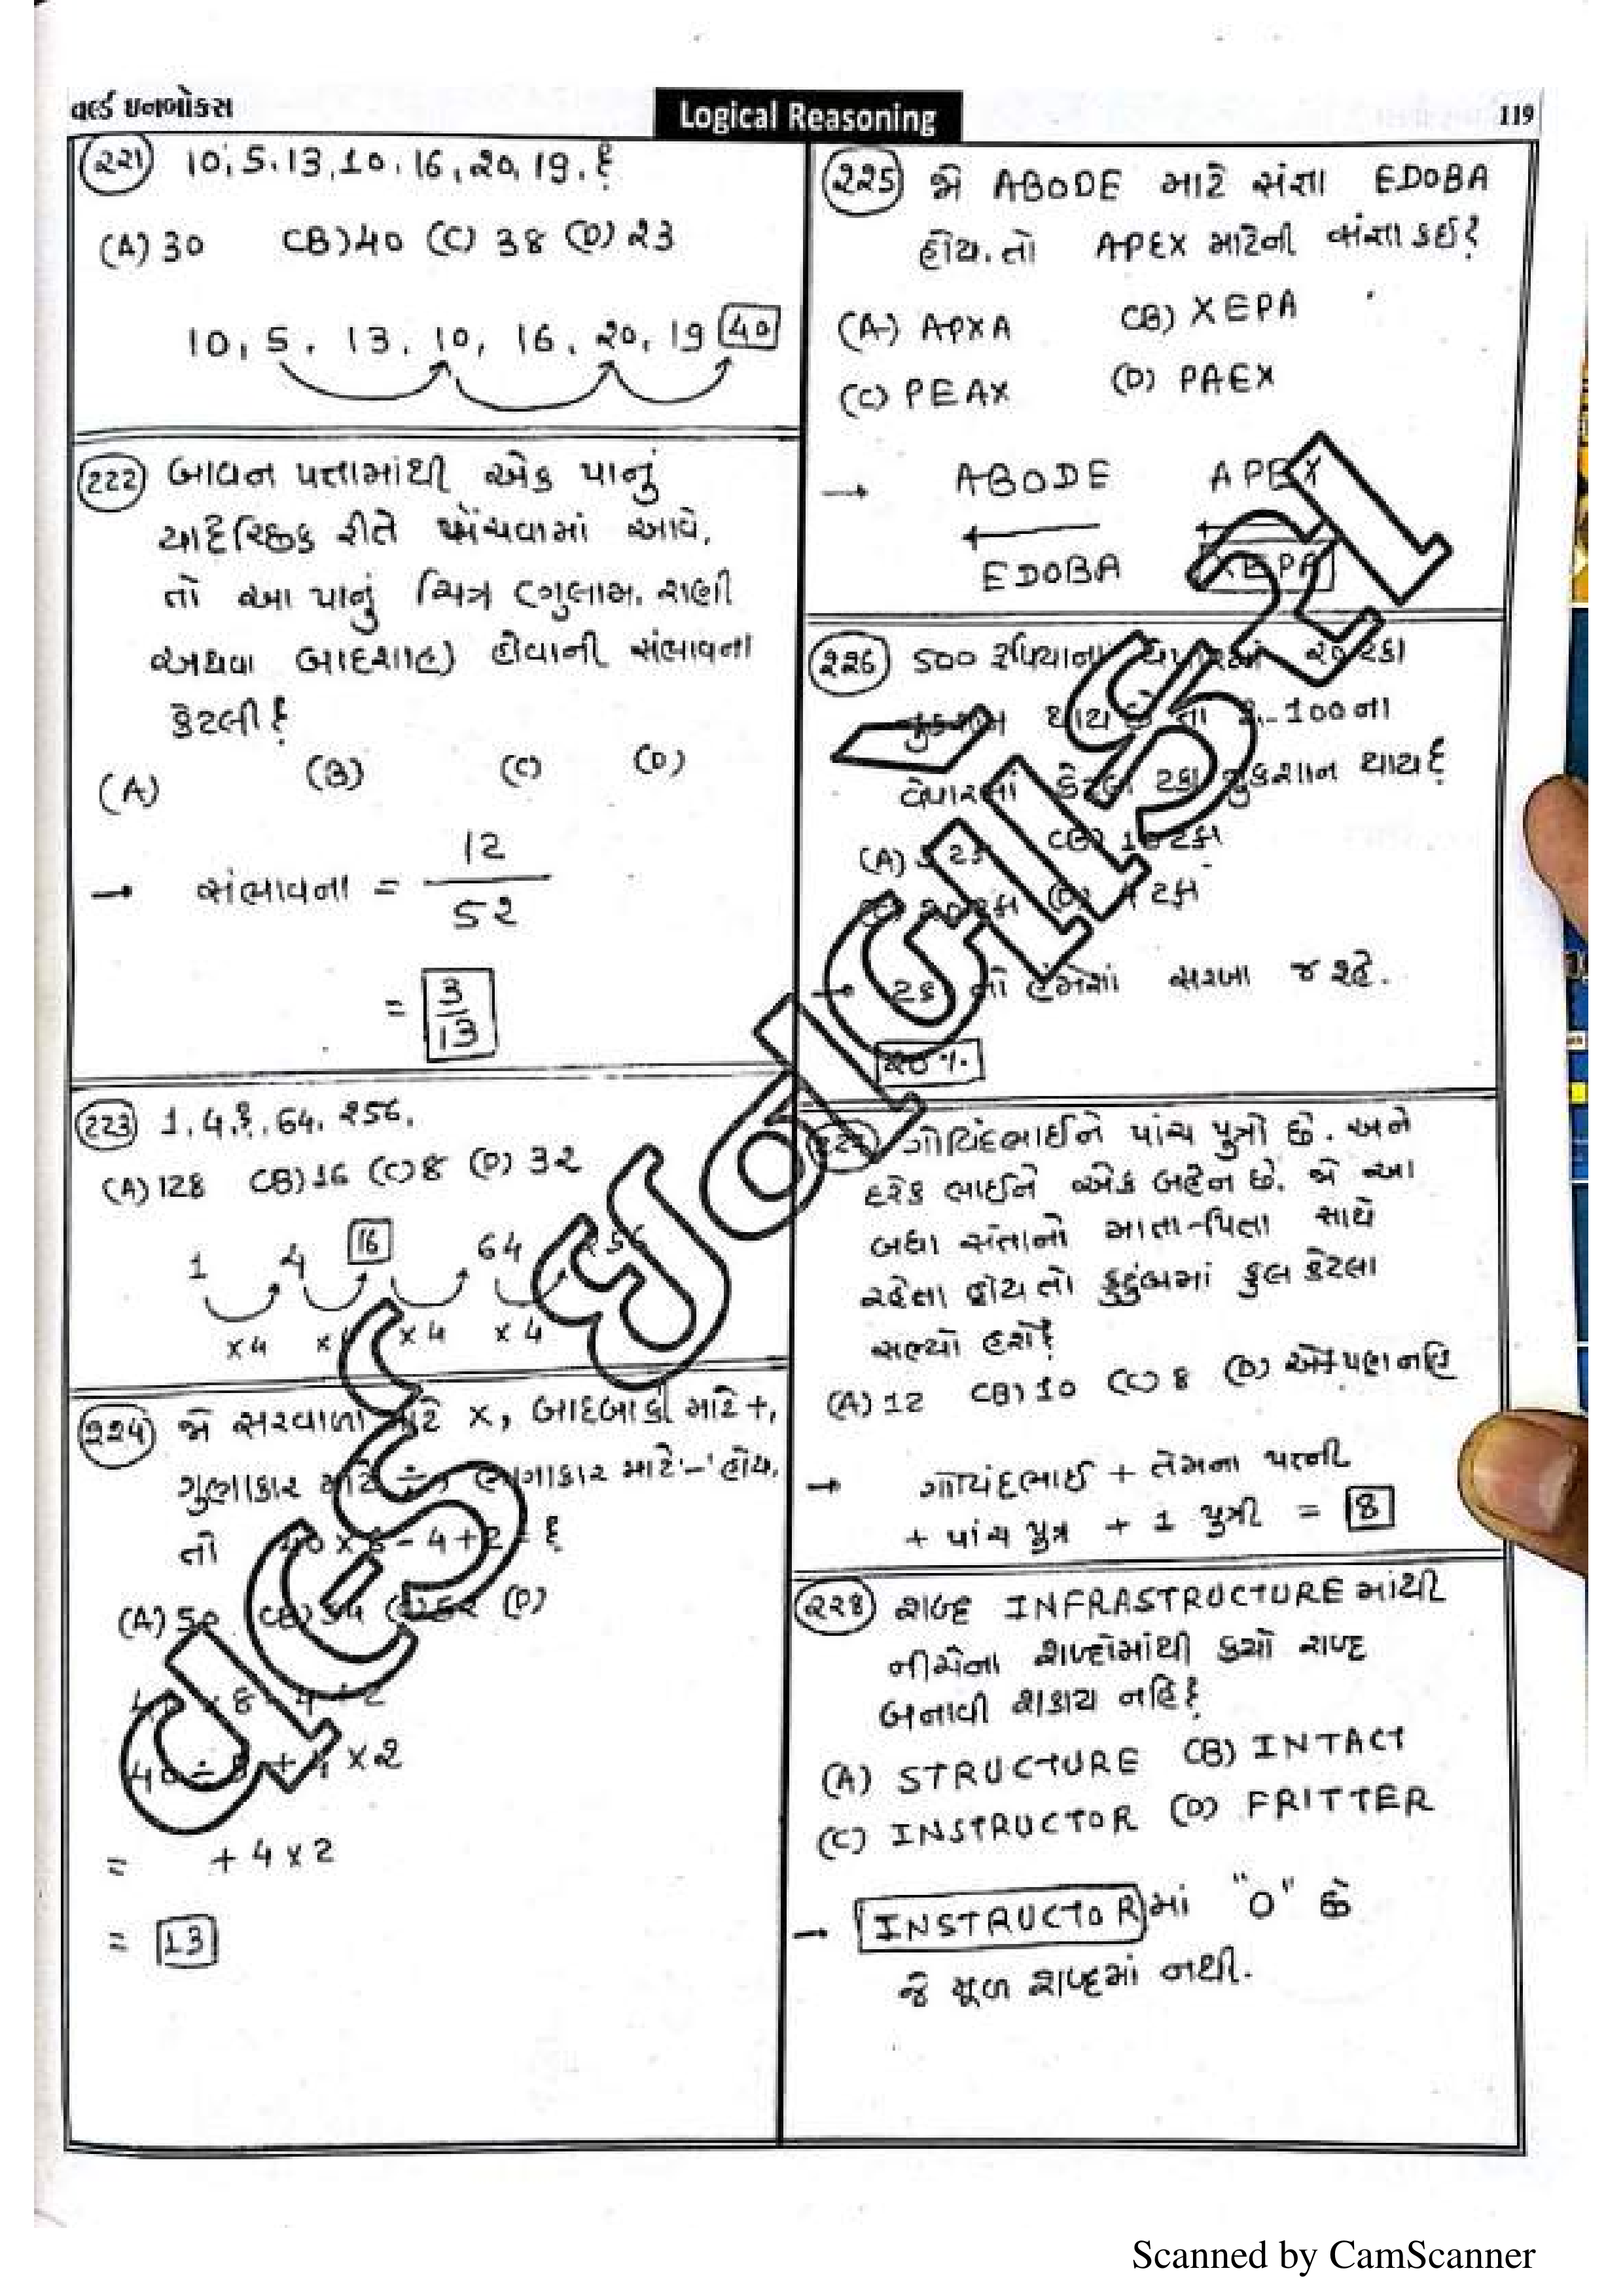 વર્લ્ડ ઇનબોક્સ
Logical Reasoning
119
(૨૨1) 10, 5, 13, 10, 16, ૨0, 19, ?
(A) 30 (B) 40 (C) 38 (D) ૨3
10, 5, 13, 10, 16, ૨0, 19 40
(222) બાવન પત્તામાંથી એક પાનું
યાદૅચ્છિક રીતે ખેંચવામાં આવે,
તો આ પાનું ચિત્ર (ગુલામ, રાણી
અથવા બાદશાહ) હોવાની સંભાવના
કેટલી?
(A) (B) (C) (D)
→ સંભાવના = 12
5૨
= 3
13
(223) 1, 4, ?, 64, ૨56,
(A) 128 (B) 16 (C) 8 (D) 32
1 4 16 64
×4 ×4 ×4
(૨૨4) જો સરવાળા માટે ×, બાદબાકી માટે +,
ગુણાકાર માટે ÷, ભાગાકાર માટે '-' હોય,
તો
(A) 50 (B) 54 (D)
×૨
= + 4 × 2
= 13
(૨૨5) જો ABODE માટે સંજ્ઞા EDOBA
હોય, તો APEX માટેની સંજ્ઞા કઈ?
(A) APXA (B) XEPA
(C) PEAX (D) PAEX
→ ABODE APEX
EDOBA XEPA
(૨૨6) 500 રૂપિયાના ૨0 ટકા
થાય 100 ના
ટકા નુકશાન થાય?
(A) (B) 10 ટકા
(D) 4 ટકા
→ હંમેશાં સરખા જ રહે.
૨0%
ગોવિંદભાઈને પાંચ પુત્રો છે. અને
દરેક ભાઈને એક બહેન છે. જો આ
બધા સંતાનો માતા-પિતા સાથે
રહેતા હોય તો કુટુંબમાં કુલ કેટલા
સભ્યો હશે?
(A) 12 (B) 10 (C) 8 (D) એકપણ નહિ
→ ગોવિંદભાઈ + તેમના પત્ની
+ પાંચ પુત્ર + 1 પુત્રી = 8
(૨૨8) શબ્દ INFRASTRUCTURE માંથી
નીચેના શબ્દોમાંથી કયો શબ્દ
બનાવી શકાય નહિ?
(A) STRUCTURE (B) INTACT
(C) INSTRUCTOR (D) FRITTER
→ INSTRUCTOR માં "O" છે
જે મૂળ શબ્દમાં નથી.
Scanned by CamScanner